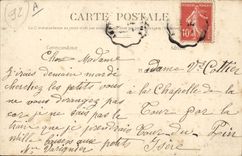 92 A
CARTE POSTALE
Correspondance
Chère Madame
J'irais demain mardi
chercher les petits vous
ne vous dérangez pas
car je ne sais pas le
train que je prendrais
mille baisers aux petits
Mme
Dame Vve Collier
à la Chapelle de la
Tour par la
Tour du Pin
Isère
10